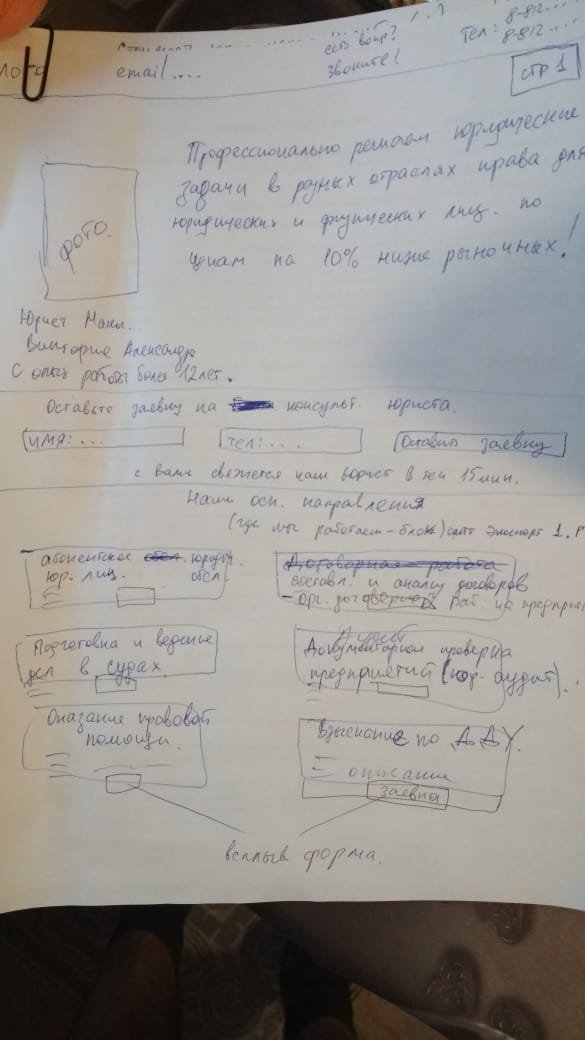 есть вопр?
Тел: 8-812....
8-812....
лого
email....
звоните!
стр 1
Профессионально решаем юридические
задачи в разных отраслях права для
юридических и физических лиц. по
ценам на 10% ниже рыночных!
фото.
Юрист
Виктория Александр
С опыт работы более 12 лет.
Оставьте заявку на консульт. юриста.
имя: ...
тел: ...
Оставить заявку
с Вами свяжется наш юрист в теч 15 мин.
Наши осн. направления
(где мы работаем - блок) сайт Экспорт 1. Р
абонентское обсл. юридич.
юр. лиц. обсл.
Договорная работа
составл. и анализ договоров
- Орг. договорной раб. на предприя
Подготовка и ведение
дел в судах
Документарная проверка
предприятий (юр. аудит).
Оказание правовой
помощи.
Взыскание по ДДУ.
описание
заявка
всплыв форма.